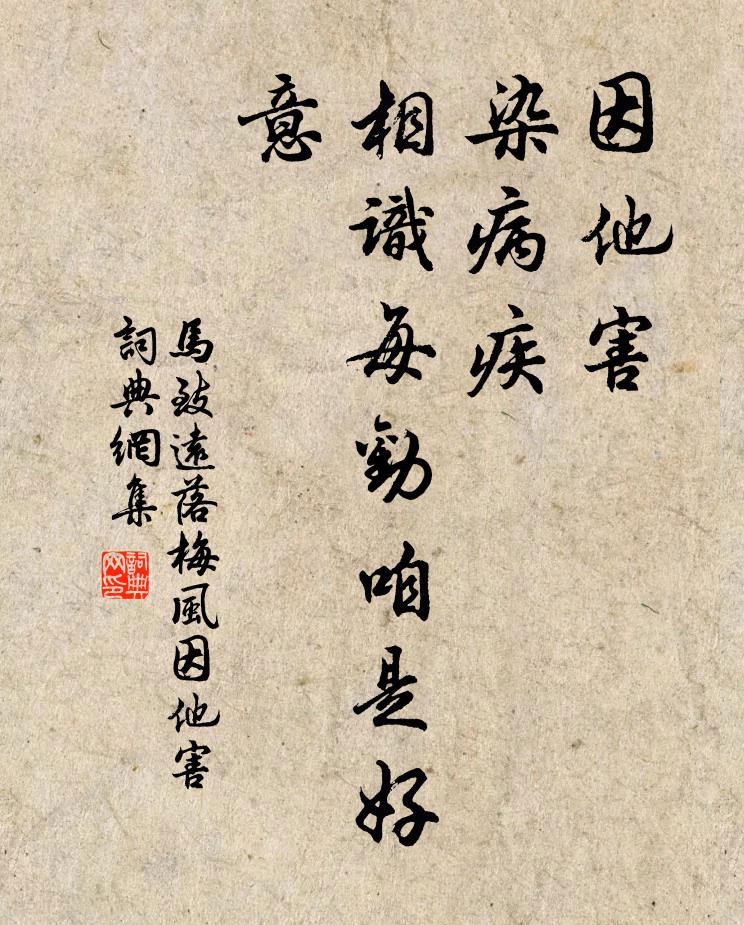 因他害
染病疾
相識每勸咱是好
意
馬致遠落梅風因他害
詞典網集
詞典網印